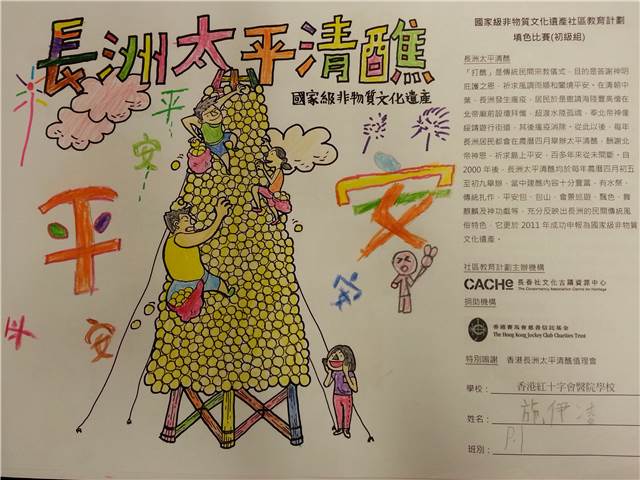 長洲太平清醮
國家級非物質文化遺產
平
安
平
安
安
平
安
國家級非物質文化遺產社區教育計劃
填色比賽(初級組)
長洲太平清醮
「打醮」是傳統民間宗教儀式，目的是答謝神明
庇護之恩，祈求風調雨順和闔境平安。在清朝中
葉，長洲發生瘟疫，居民於是邀請海陸豐高僧在
北帝廟前設壇拜懺，超渡水陸孤魂，奉北帝神像
綏靖遊行街道，其後瘟疫消除。從此以後，每年
長洲居民都會在農曆四月舉辦太平清醮，酬謝北
帝神恩，祈求島上平安，百多年來從未間斷。自
2000 年後，長洲太平清醮均於每年農曆四月初五
至初九舉辦，當中建醮內容十分豐富，有水祭、
傳統扎作、平安包、包山、會景巡遊、飄色、舞
麒麟及神功戲等，充分反映出長洲的民間傳統風
俗特色，它更於 2011 年成功申報為國家級非物質
文化遺產。
社區教育計劃主辦機構
CACHe 長春社文化古蹟資源中心
The Conservancy Association Centre for Heritage
捐助機構
香港賽馬會慈善信託基金
The Hong Kong Jockey Club Charities Trust
特別鳴謝 香港長洲太平清醮值理會
學校： 香港紅十字會醫院學校
姓名： 施伊凌
班別： P.1